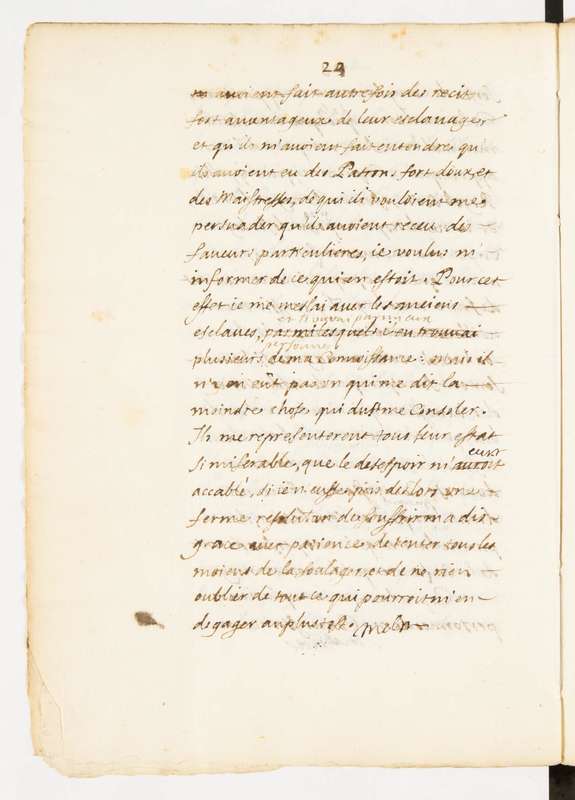 24
m'avoient fait autrefois des recits
fort avantageux de leur esclavage
et qu'ils m'avoient fait entendre qu
ils avoient eu des Patrons fort doux, et
des Maistresses, de qui ils vouloient me
persuader qu'ils avoient receu des
faveurs particulieres, ie voulus m'
informer de ce qui en estoit. Pour cet
effet ie me meslai avec les anciens
et trouvai parmi eux
esclaves, parmi lesquels i'en trouvai
personnes
plusieurs de ma Connoissance: mais il
n'y en eût pas un qui me dit la
moindre chose qui dust me Consoler.
Ils me representerent tous leur estat
eust
si miserable, que le desespoir m'auroit
accablé, si ie n'eusse pris des lors une
ferme resolution de souffrir ma dis
grace avec patience de tenter tous les
moiens de la soulager, et de ne rien
oublier de tout ce qui pourroit m'en
degager au plustost.